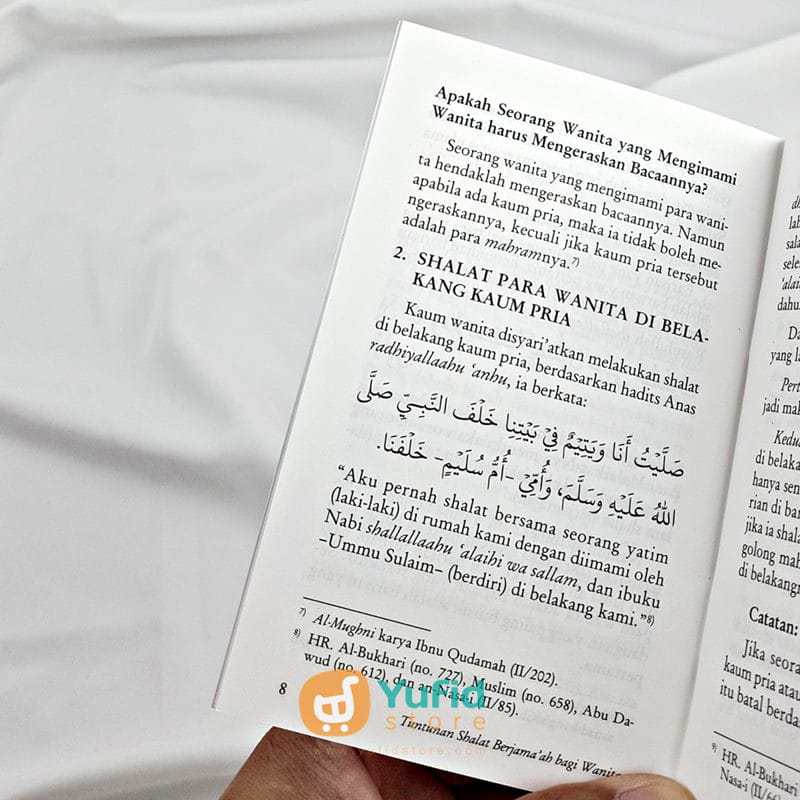 Apakah Seorang Wanita yang Mengimami
Wanita harus Mengeraskan Bacaannya?
Seorang wanita yang mengimami para wani-
ta hendaklah mengeraskan bacaannya. Namun
apabila ada kaum pria, maka ia tidak boleh me-
ngeraskannya, kecuali jika kaum pria tersebut
adalah para mahramnya.⁷⁾
2. SHALAT PARA WANITA DI BELA-
KANG KAUM PRIA
Kaum wanita disyari'atkan melakukan shalat
di belakang kaum pria, berdasarkan hadits Anas
radhiyallaahu 'anhu, ia berkata:
صَلَّيْتُ أَنَا وَيَتِيْمٌ فِيْ بَيْتِنَا خَلْفَ النَّبِيِّ صَلَّى
اللهُ عَلَيْهِ وَسَلَّمَ، وَأُمِّيْ -أُمُّ سُلَيْمٍ- خَلْفَنَا.
"Aku pernah shalat bersama seorang yatim
(laki-laki) di rumah kami dengan diimami oleh
Nabi shallallaahu 'alaihi wa sallam, dan ibuku
–Ummu Sulaim– (berdiri) di belakang kami."⁸⁾
⁷⁾ Al-Mughni karya Ibnu Qudamah (II/202).
⁸⁾ HR. Al-Bukhari (no. 727), Muslim (no. 658), Abu Da-
wud (no. 612), dan an-Nasa-i (II/85).
8
Tuntunan Shalat Berjama'ah bagi Wanita
Yufid
store
yufidstore.com
dahu
yang la
jadi mah
Kedu
di belaka
hanya sen
rian di bar
jika ia shala
golong mah
di belakang
Catatan:
Jika seora
kaum pria atau
itu batal berda
⁹⁾ HR. Al-Bukhari